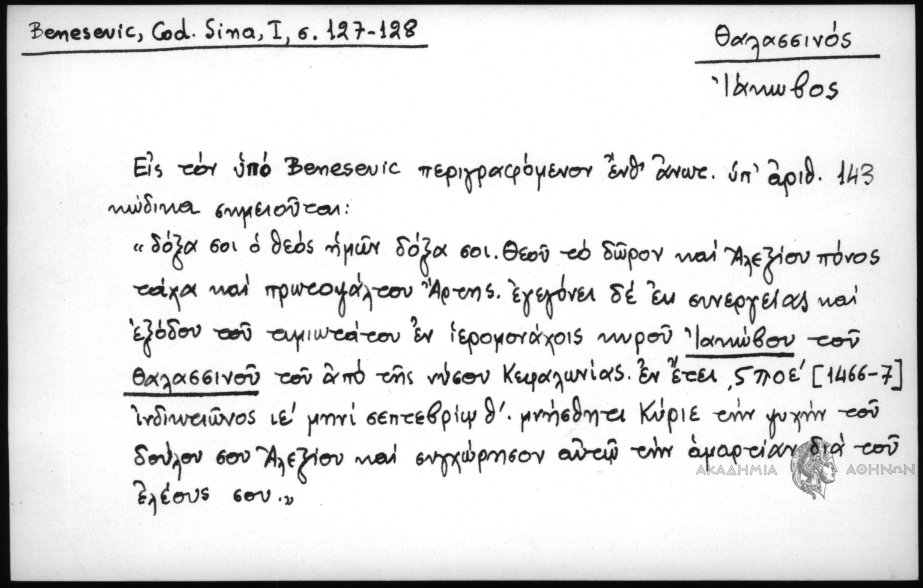 Benesevic, Cod. Sina, I, σ. 127-128
Θαλασσινός
Ἰάκωβος
Εἰς τόν ὑπό Benesevic περιγραφόμενον ἔνθ' ἄνωτ. ὑπ' ἀριθ. 143
κώδικα σημειοῦται:
« δόξα σοι ὁ θεός ἡμῶν δόξα σοι. Θεοῦ τό δῶρον καί Ἀλεξίου πόνος
τάχα καί πρωτοψάλτου Ἄρτης. ἐγεγόνει δέ ἐκ συνεργείας καί
ἐξόδου τοῦ τιμιωτάτου ἐν ἱερομονάχοις κυροῦ Ἰακώβου τοῦ
Θαλασσινοῦ τοῦ ἀπό τῆς νήσου Κεφαλωνίας. Ἐν ἔτει ͵ϚΠΟΕ' [1466-7]
ἰνδικτιῶνος ιε' μηνί σεπτεβρίῳ θ'. μνήσθητι Κύριε τήν ψυχήν τοῦ
δούλου σου Ἀλεξίου καί συγχώρησον αὐτῷ τήν ἁμαρτίαν διά τοῦ
ἐλέους σου.»
ΑΚΑΔΗΜΙΑ ΑΘΗΝΩΝ